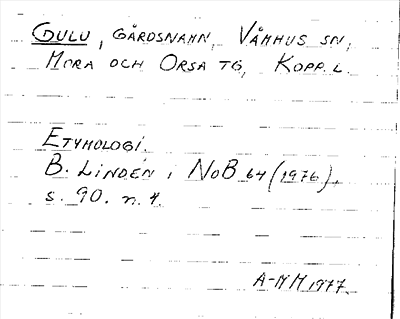 GULU, GÅRDSNAMN, VÅMHUS SN,
MORA OCH ORSA TG, KOPP.L.
ETYMOLOGI.
B. LINDÉN i NoB 64 (1976),
s. 90. n. 4.
A-MM 1977.